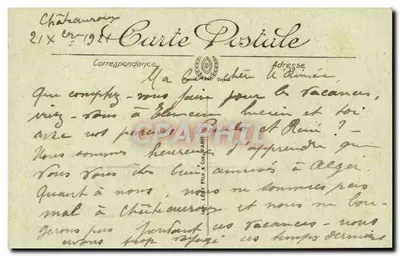 Châteauroux
21 Xbre 192
Carte Postale
Correspondance Adresse
Ma bien chère Aimée,
Que comptez-vous faire pour les vacances,
irez-vous à et toi
avec vos parents, et ? -
Nous sommes heureux d'apprendre que
vous vous êtes bien amusés à Alger
Quant à nous nous ne sommes pas
mal à Châteauroux et nous ne bou-
gerons pas pendant ces vacances - nous
avons trop voyagé ces temps derniers
CPAPHIL